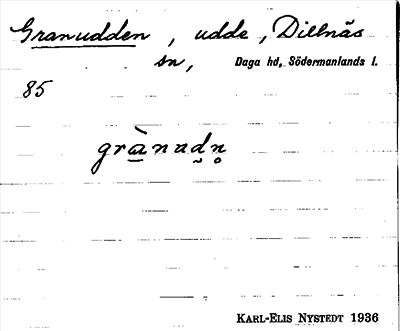 Granudden, udde, Dillnäs
sn, Daga hd, Södermanlands l.
85
grà̱nudn̥
KARL-ELIS NYSTEDT 1936